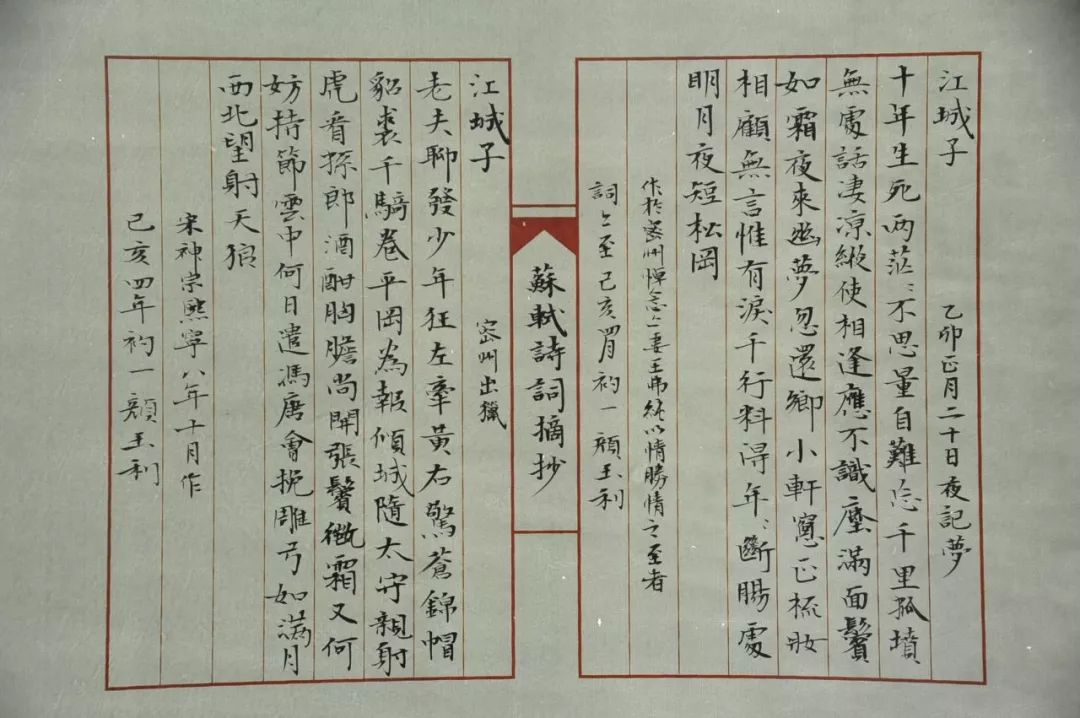 江城子 乙卯正月二十日夜記夢
十年生死两茫〻不思量自難忘千里孤墳
無處話淒凉縱使相逢應不識塵滿面鬢
如霜夜來幽夢忽還鄉小軒窻正梳妝
相顧無言惟有淚千行料得年〻斷腸處
明月夜短松岡
作於密州悼念亡妻王弗純以情勝情之至者
詞之至己亥四月初一 顏玉利
蘇軾詩詞摘抄
江城子 密州出獵
老夫聊發少年狂左牽黃右擎蒼錦帽
貂裘千騎卷平岡為報傾城隨太守親射
虎看孫郎酒酣胸膽尚開張鬢微霜又何
妨持節雲中何日遣馮唐會挽雕弓如滿月
西北望射天狼
宋神宗熙寧八年十月作
己亥四年初一顏玉利